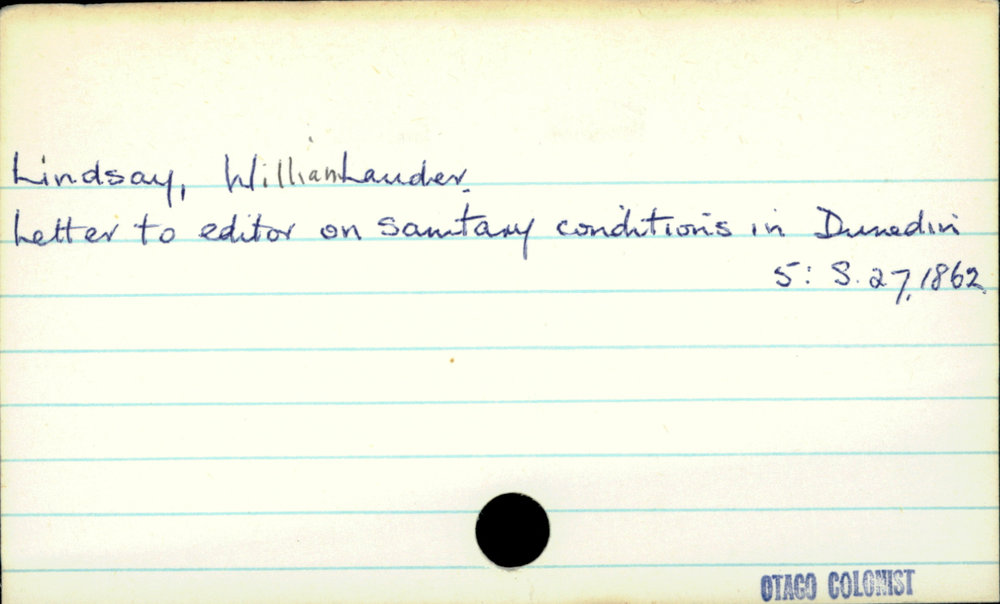 Lindsay, William Lauder.
Letter to editor on sanitary conditions in Dunedin
5: S. 27, 1862.
OTAGO COLONIST